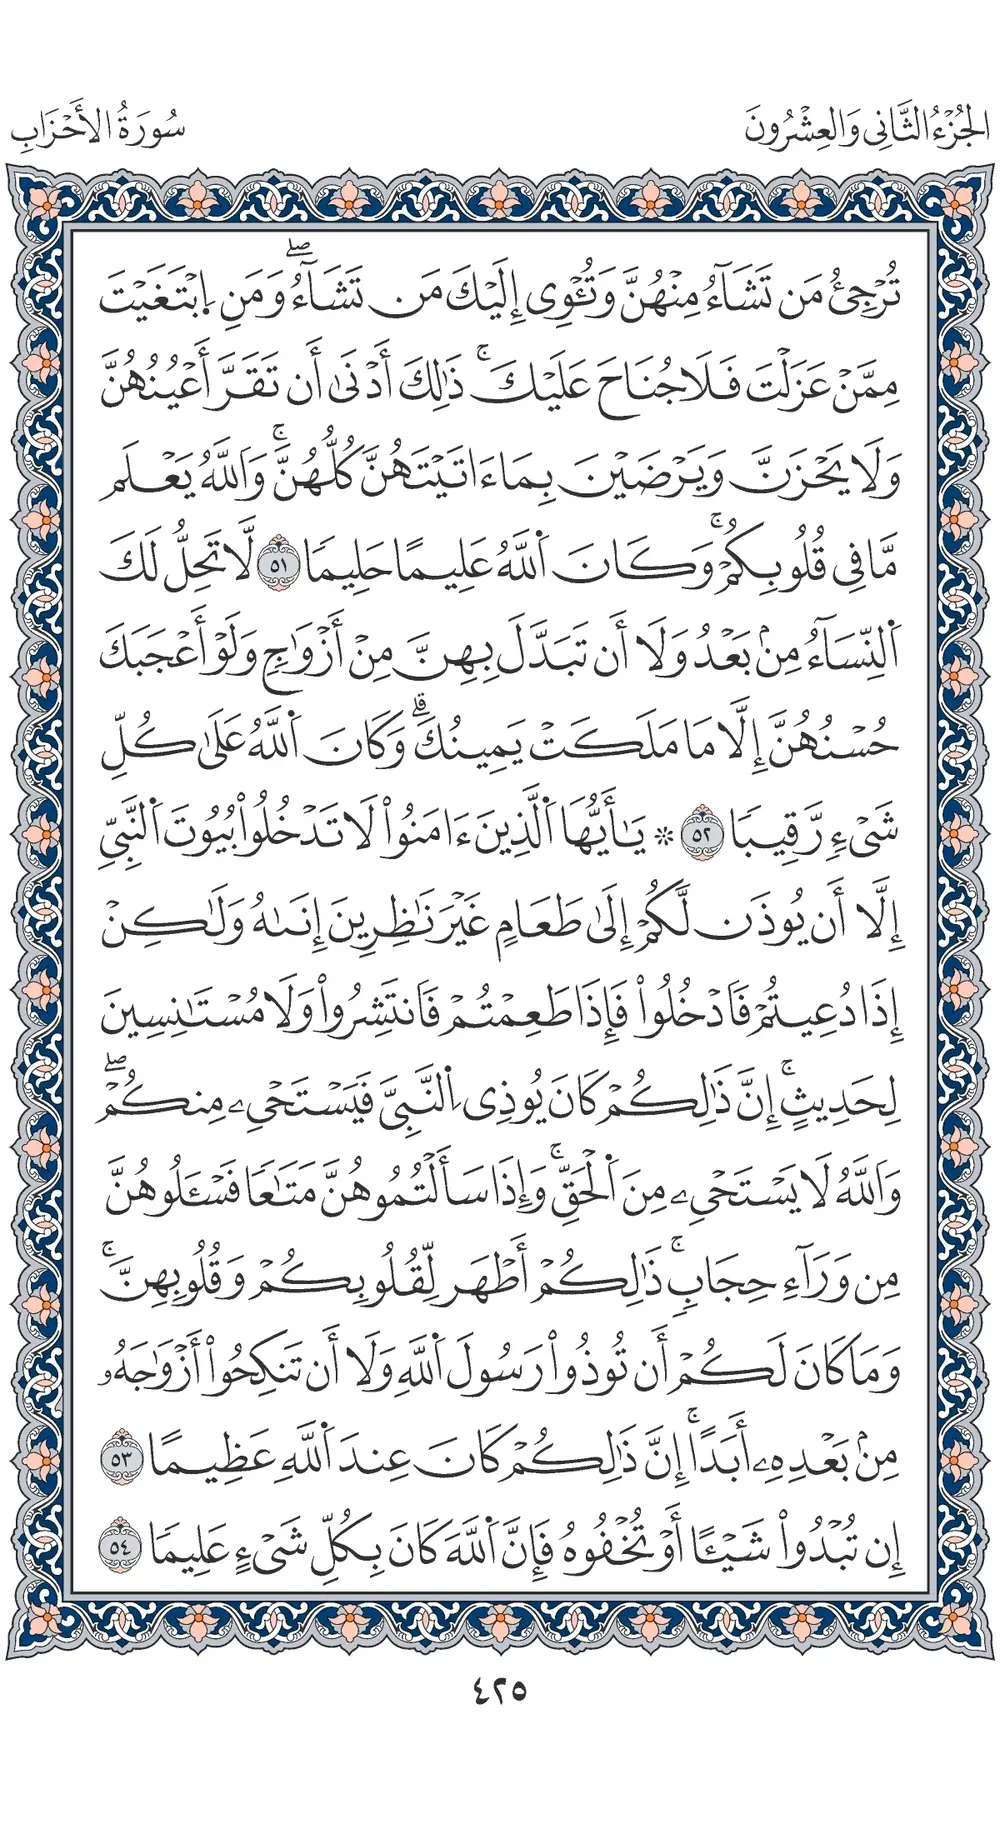 الجُزْءُ الثَّانِى وَالعِشْرُونَ
سُورَةُ الأَحْزَابِ
تُرْجِئُ مَن تَشَآءُ مِنْهُنَّ وَتُـْٔوِى إِلَيْكَ مَن تَشَآءُ ۖ وَمَنِ اِبْتَغَيْتَ
مِمَّنْ عَزَلْتَ فَلَا جُنَاحَ عَلَيْكَ ۚ ذَٰلِكَ أَدْنَىٰ أَن تَقَرَّ أَعْيُنُهُنَّ
وَلَا يَحْزَنَّ وَيَرْضَيْنَ بِمَا ءَاتَيْتَهُنَّ كُلُّهُنَّ ۚ وَاَللَّهُ يَعْلَم
مَّا فِى قُلُوبِكُمْ ۚ وَكَانَ اَللَّهُ عَلِيمًا حَلِيمًا ٥١ لَّا تَحِلُّ لَكَ
اَلنِّسَآءُ مِنۢ بَعْدُ وَلَا أَن تَبَدَّلَ بِهِنَّ مِنْ أَزْوَٰجٍ وَلَوْ أَعْجَبَكَ
حُسْنُهُنَّ إِلَّا مَا مَلَكَتْ يَمِينُكَ ۗ وَكَانَ اَللَّهُ عَلَىٰ كُلِّ
شَىْءٍ رَّقِيبًا ٥٢ ۞ يَـٰأَيُّهَا اَلَّذِينَ ءَامَنُوا۟ لَا تَدْخُلُوا۟ بُيُوتَ اَلنَّبِىِّ
إِلَّا أَن يُوذَن لَّكُمْ إِلَىٰ طَعَامٍ غَيْرَ نَـٰظِرِينَ إِنَىٰهُ وَلَـٰكِنْ
إِذَا دُعِيتُمْ فَادْخُلُوا۟ فَإِذَا طَعِمْتُمْ فَانتَشِرُوا۟ وَلَا مُسْتَـٰنِسِينَ
لِحَدِيثٍ ۚ إِنَّ ذَٰلِكُمْ كَانَ يُوذِى اِلنَّبِىَّ فَيَسْتَحْىِۦ مِنكُمْ ۖ
وَاَللَّهُ لَا يَسْتَحْىِۦ مِنَ اَلْحَقِّ ۚ وَإِذَا سَأَلْتُمُوهُنَّ مَتَـٰعًا فَسْـَٔلُوهُنَّ
مِن وَرَآءِ حِجَابٍ ۚ ذَٰلِكُمْ أَطْهَر لِّقُلُوبِكُمْ وَقُلُوبِهِنَّ ۚ
وَمَا كَانَ لَكُمْ أَن تُوذُوا۟ رَسُولَ اَللَّهِ وَلَا أَن تَنكِحُوا۟ أَزْوَٰجَهُۥ
مِنۢ بَعْدِهِۦ أَبَدًا ۚ إِنَّ ذَٰلِكُمْ كَانَ عِندَ اَللَّهِ عَظِيمًا ٥٣
إِن تُبْدُوا۟ شَيْـًٔا أَوْ تُخْفُوهُ فَإِنَّ اَللَّهَ كَانَ بِكُلِّ شَىْءٍ عَلِيمًا ٥٤
٤٢٥